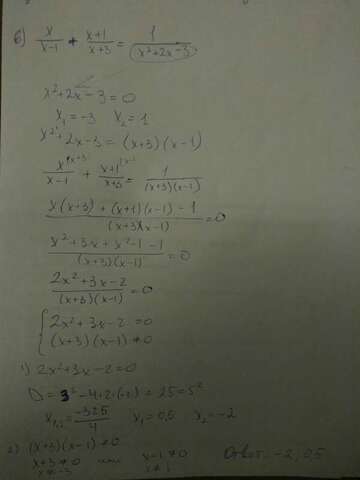 б) x/(x-1) + (x+1)/(x+3) = 1/(x²+2x-3)
x²+2x-3=0
x₁=-3 x₂=1
x²+2x-3=(x+3)(x-1)
x^(x+3)/(x-1) + (x+1)^(x-1)/(x+3) = 1/((x+3)(x-1))
(x(x+3)+(x+1)(x-1)-1)/((x+3)(x-1)) =0
(x²+3x+x²-1-1)/((x+3)(x-1)) =0
(2x²+3x-2)/((x+3)(x-1)) =0
{2x²+3x-2=0
(x+3)(x-1)≠0
1) 2x²+3x-2=0
D=3²-4·2·(-2)=25=5²
x₁,₂=(-3±5)/4 x₁=0,5 x₂=-2
2) (x+3)(x-1)≠0
x+3≠0 или x-1≠0
x≠-3 x≠1
Ответ: -2; 0,5